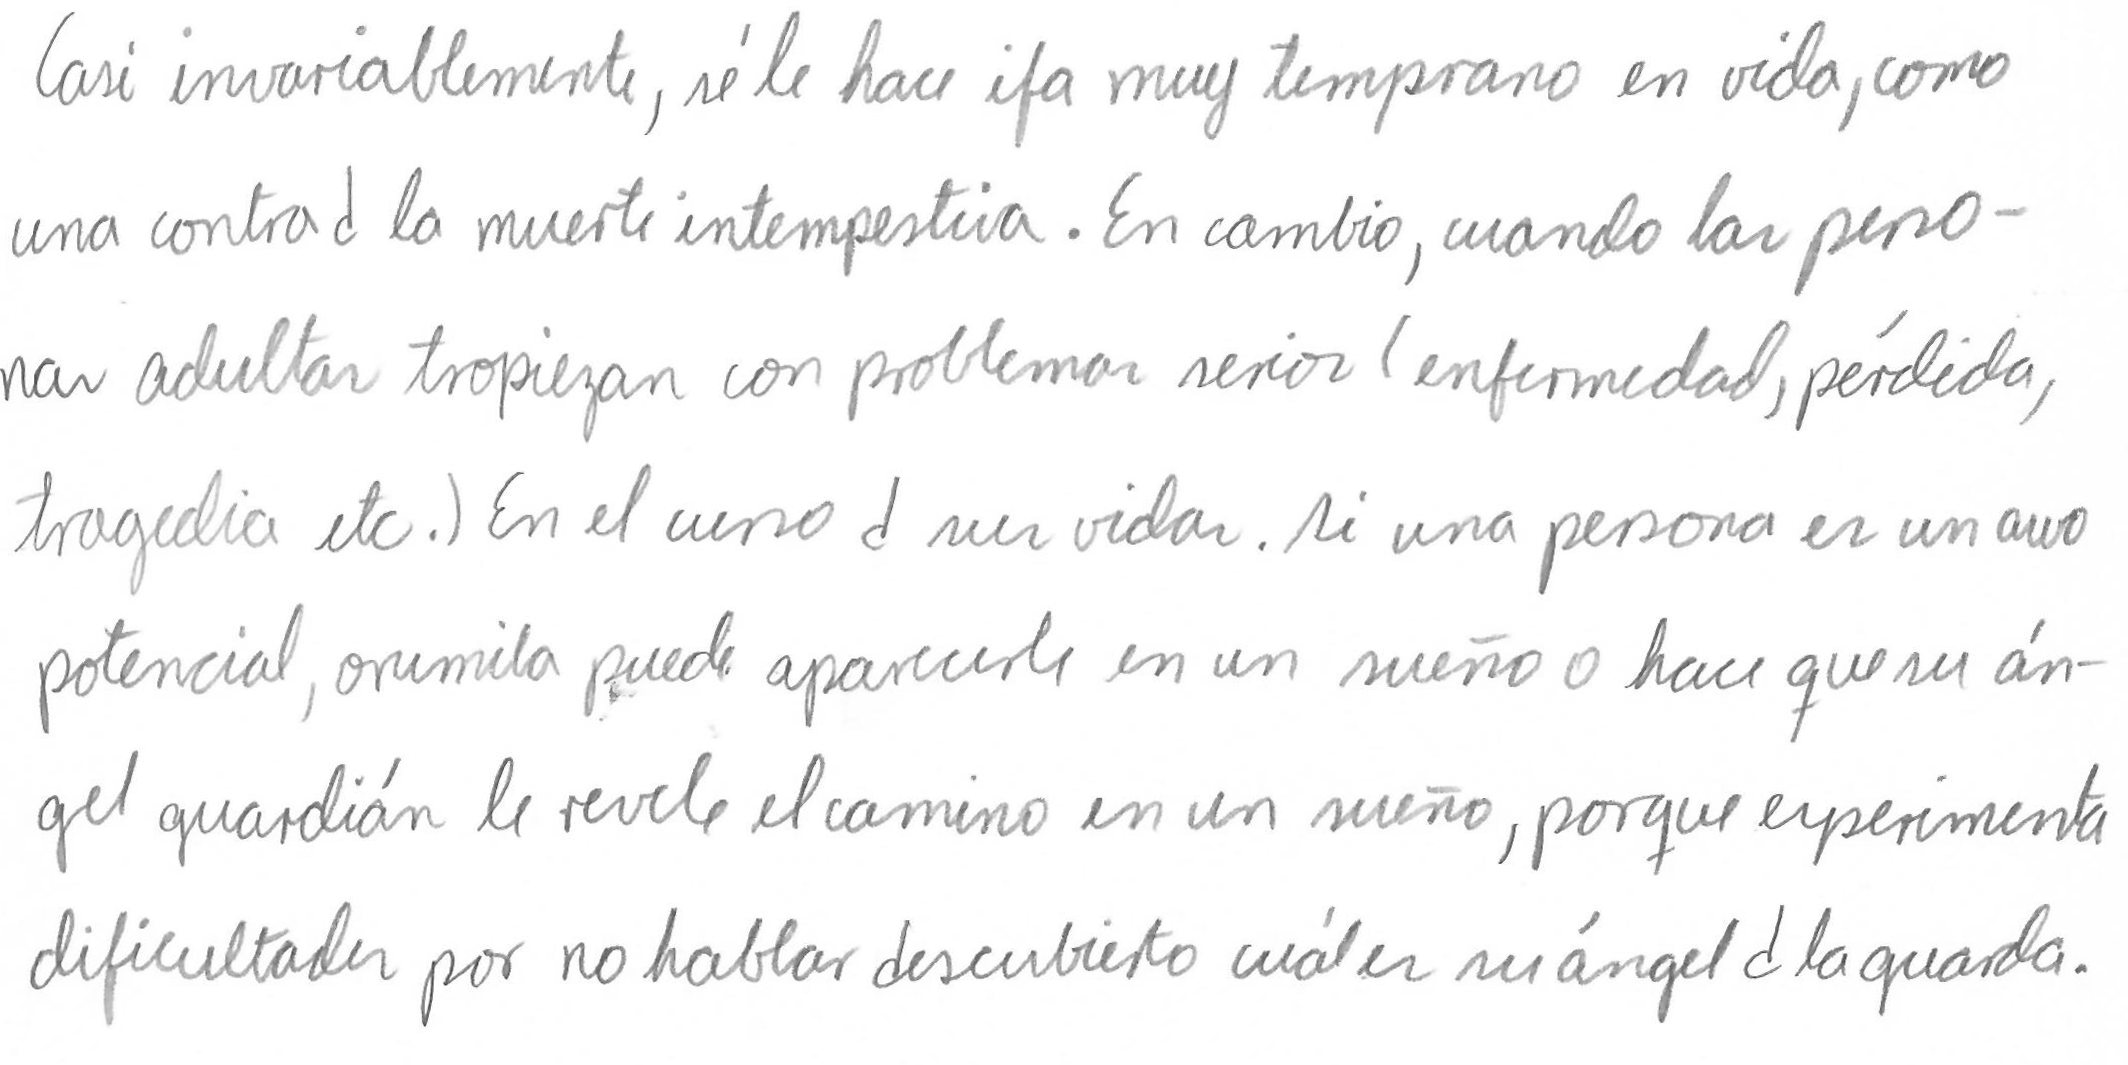 Casi invariablemente, sé le hace ifa muy temprano en vida, como
una contra d la muerte intempestiva. En cambio, cuando las perso-
nas adultas tropiezan con problemas serios (enfermedad, pérdida,
tragedia etc.) En el curso d sus vidas. Si una persona es un awo
potencial, orumila puede aparecerle en un sueño o hace que su án-
gel guardián le revele el camino en un sueño, porque experimenta
dificultades por no hablar descubierto cuál es su ángel d la guarda.